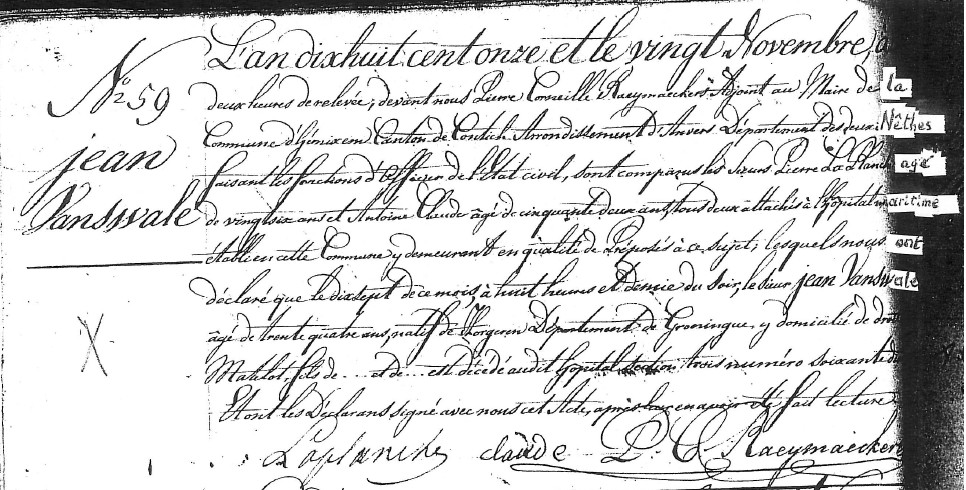 N.º 59
jean
Vanswale
L'an dixhuit cent onze et le vingt Novembre, a
deux heures de relevée, devant nous Pierre Corneille Raeymaeckers Adjoint au Maire de la
Commune d'hémixem Canton de Contich Arrondissement d'Anvers Département des deux Nêthes
faisant les fonctions d'officier de l'Etat civil, sont comparus les Sieurs Pierre La Planche agé
de vingt six ans et Antoine Claude âgé de cinquante deux ans, tous deux attachés à l'hopital maritime
établi en cette Commune y demeurant en qualité de Préposés à ce sujet, lesquels nous ont
déclaré que le dix sept de ce mois, à huit heures et demie du soir, le sieur jean Vanswale
âgé de trente quatre ans, natif de Département de Groningue, y domicilié de droit
Matelot, fils de ... et de ... est décédé audit hopital section trois numéro soixante
Et ont les Déclarans signé avec nous cet Acte, après leur en avoir été fait lecture
Laplanche claude P. C. Raeymaeckers